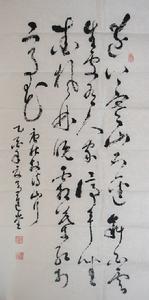 遠上寒山石徑斜白雲
生處有人家停車坐
愛楓林晚霜葉紅於
二月花
唐杜牧詩山行